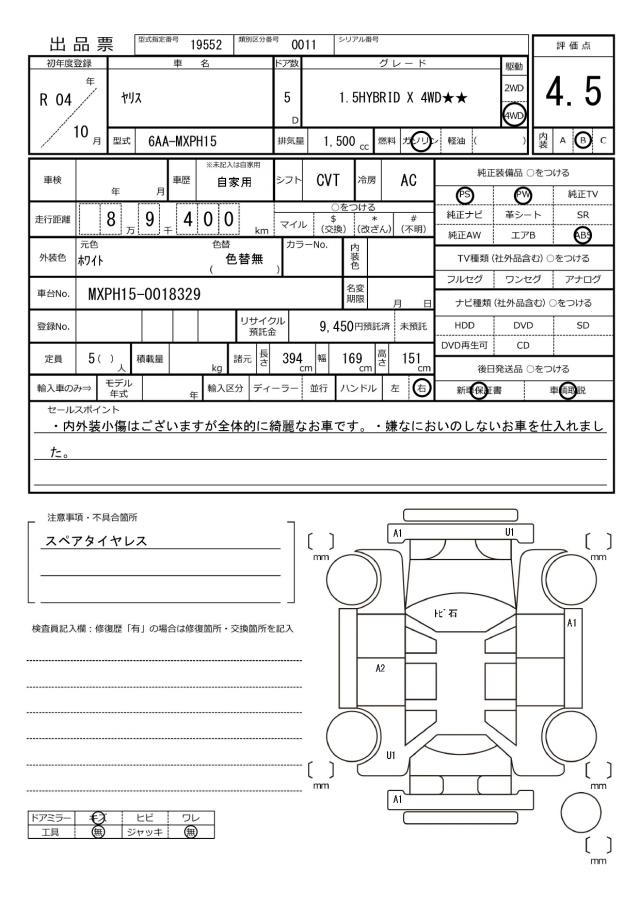 出品票 型式指定番号 19552 類別区分番号 0011 シリアル番号
評価点
4.5
内装 A B C
初年度登録 車名 ドア数 グレード 駆動
R 04 年 10 月
ﾔﾘｽ
5 D
1.5HYBRID X 4WD★★
2WD
4WD
型式 6AA-MXPH15 排気量 1,500 cc 燃料 ガソリン 軽油 ( )
車検 年 月 車歴 ※未記入は自家用 自家用 シフト CVT 冷房 AC
走行距離 8 9 万 千 4 0 0 km
○をつける
マイル $(交換) *(改ざん) #(不明)
外装色 元色 ﾎﾜｲﾄ 色替 ( 色替無 ) カラーNo. 内装色
車台No. MXPH15-0018329 名変期限 月 日
登録No. リサイクル預託金 9,450円預託済 未預託
定員 5 ( ) 人 積載量 kg 諸元 長さ 394 cm 幅 169 cm 高さ 151 cm
輸入車のみ⇒ モデル年式 年 輸入区分 ディーラー 並行 ハンドル 左 右
純正装備品 ○をつける
PS PW 純正TV
純正ナビ 革シート SR
純正AW エアB ABS
TV種類(社外品含む) ○をつける
フルセグ ワンセグ アナログ
ナビ種類(社外品含む) ○をつける
HDD DVD SD
DVD再生可 CD
後日発送品 ○をつける
新車保証書 車輌取説
セールスポイント
・内外装小傷はございますが全体的に綺麗なお車です。・嫌なにおいのしないお車を仕入れまし
た。
注意事項・不具合箇所
スペアタイヤレス
検査員記入欄：修復歴「有」の場合は修復箇所・交換箇所を記入
ドアミラー キズ ヒビ ワレ
工具 無 ジャッキ 無
A1 U1
mm mm
ﾄﾋﾞ石
A1
A2
U1
mm mm
A1
mm